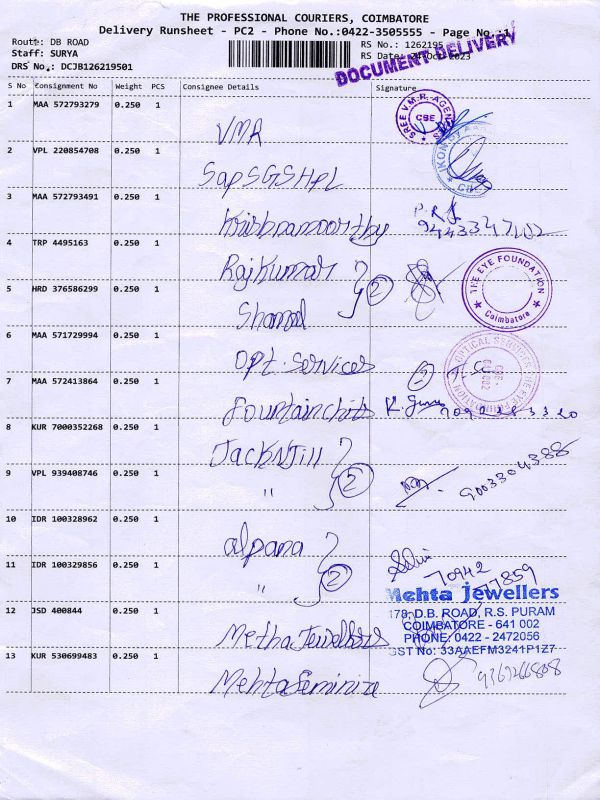 THE PROFESSIONAL COURIERS, COIMBATORE
Delivery Runsheet - PC2 - Phone No.:0422-3505555 - Page No.:1
Route: DB ROAD
RS No.: 1262195
Staff: SURYA
RS Date: 24-Oct-2023
DRS No.: DCJB126219501
DOCUMENT DELIVERY
S No Consignment No Weight PCS Consignee Details Signature
1 MAA 572793279 0.250 1 VMR
SREE V.M.R. AGEN
CBE
2 VPL 220854708 0.250 1 SapSGSHPL
3 MAA 572793491 0.250 1 Krishnamoorthy
4 TRP 4495163 0.250 1 Rajkumar 2
THE EYE FOUNDATION
Coimbatore
5 HRD 376586299 0.250 1
6 MAA 571729994 0.250 1 Opt. Services 2
OPTICAL SERVICES
THE EYE FOUNDATION
7 MAA 572413864 0.250 1 Fountainchits
8 KUR 7000352268 0.250 1 JackNJill 2
9003304388
9 VPL 939408746 0.250 1 "
10 IDR 100328962 0.250 1 alpana 2
70942
77859
11 IDR 100329856 0.250 1 "
Mehta Jewellers
178, D.B. ROAD, R.S. PURAM
COIMBATORE - 641 002
PHONE: 0422 - 2472056
GST No: 33AAEFM3241P1Z7
12 JSD 400844 0.250 1 Metha Jewellers
13 KUR 530699483 0.250 1 Mehta